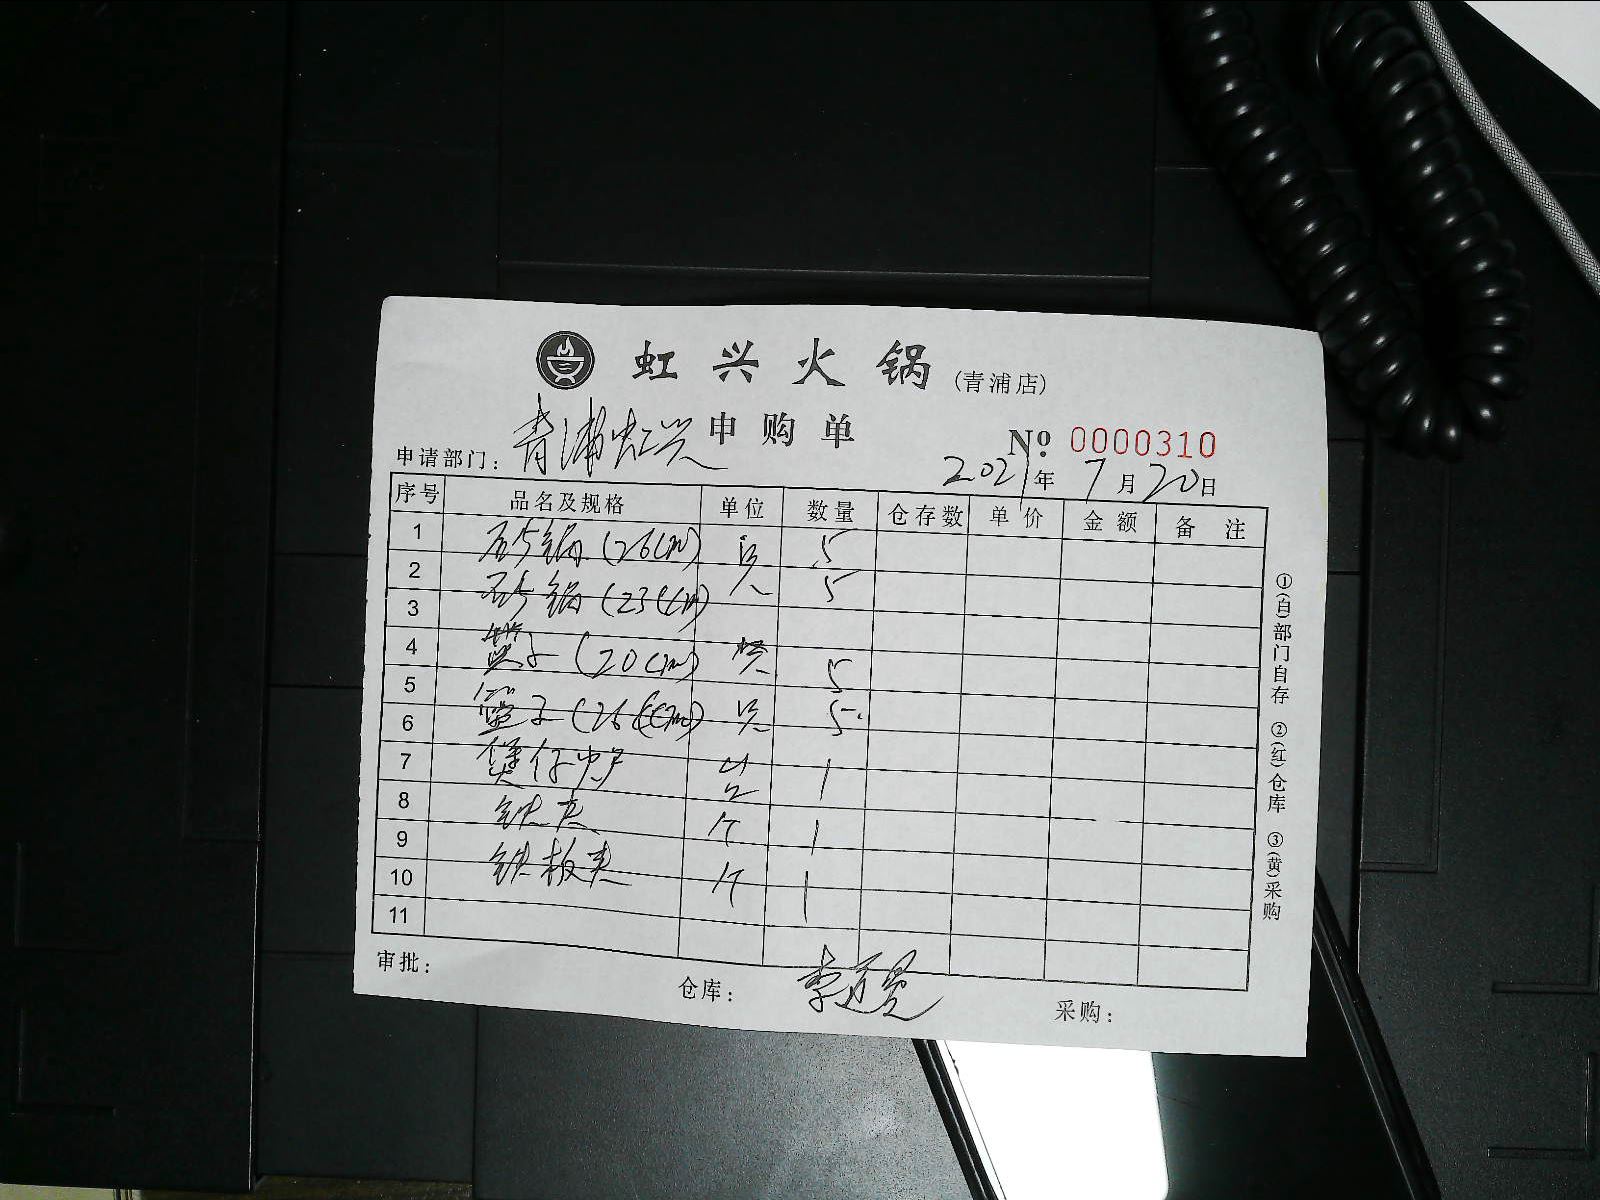 虹兴火锅(青浦店)
申购单
№ 0000310
申请部门: 青浦虹兴
2021年7月20日
序号 品名及规格 单位 数量 仓存数 单价 金额 备注
1 砂锅(26cm) 只 5
2 砂锅(23cm) 只 5
3
4 篮子(20cm) 只 5
5
6 篮子(26cm) 只 5
7 煲仔炉 台 1
8 铁夹 个 1
9
10 铁板夹 个 1
11
审批:
仓库:
采购:
①(白)部门自存 ②(红)仓库 ③(黄)采购